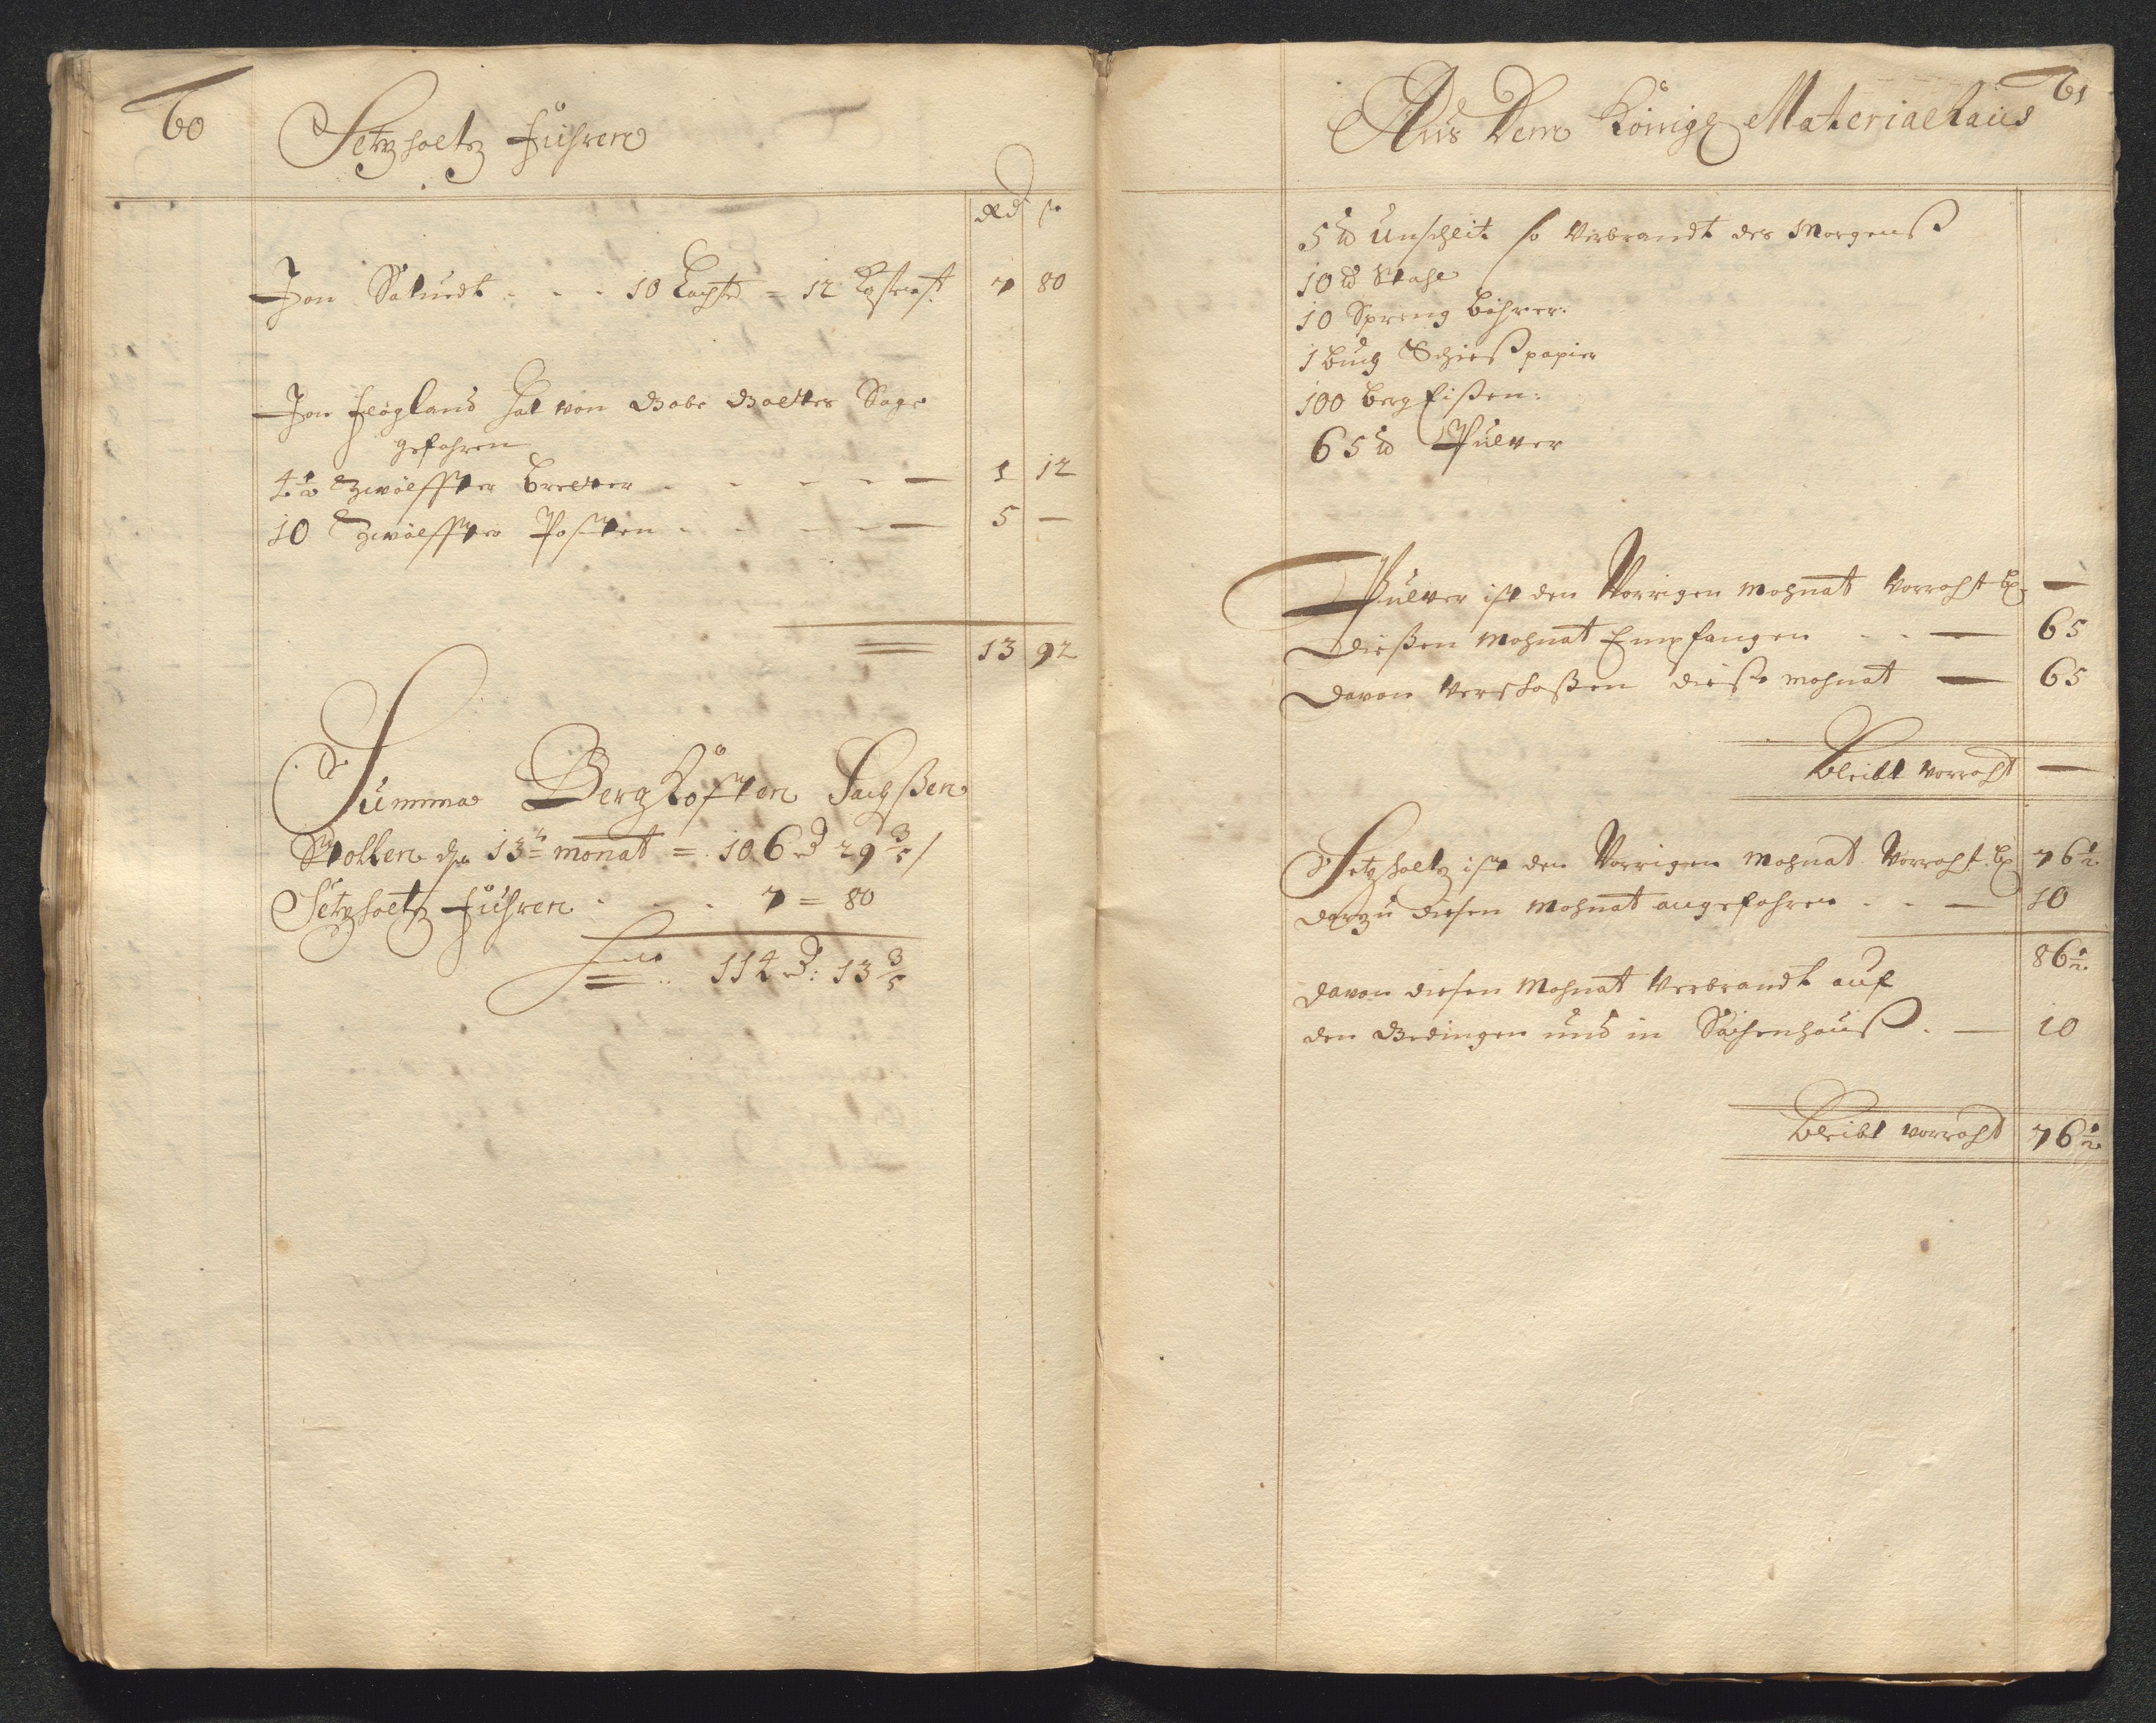 60
Setzholtz führen
Rd ß
Jon Saluedt - - - 10 Lachtr = 7 80
Jon hat von Sage
gefahren
4½ Zwölffter Bretter - - - - 1 12
10 Zwölffter Posten - - - - 5 —
13 92
Summa Berg Kosten Sachßen
Stollen 13 monat = 106 Rd 29 3/5 /
Setzholtz führen - - - 7 = 80
Sma 114 Rd: 13 3/5
61
Aus Dem Königl Materialhaus
5 ℔ Unschlit so Verbrandt des Morgenß
10 ℔ Stahl
10 Spreng böhrer:
1 buch Schießpapier
100 berg Eißen:
65 ℔ Pulver
Pulver ist den Vorrigen Mohnat Vorraht —
Dießen Mohnat Empfangen - - — 65
Davon Verschoßen dieße mohnat — 65
Bleibt Vorraht —
Setzholtz ist den Vorrigen Mohnat Vorraht 76½
Darzu diesen Mohnat angefahren - - — 10
86½
Davon diesen Mohnat Verbrandt auf
den Gedingen und in Sachsenhauß. — 10
Bleibt vorraht 76½